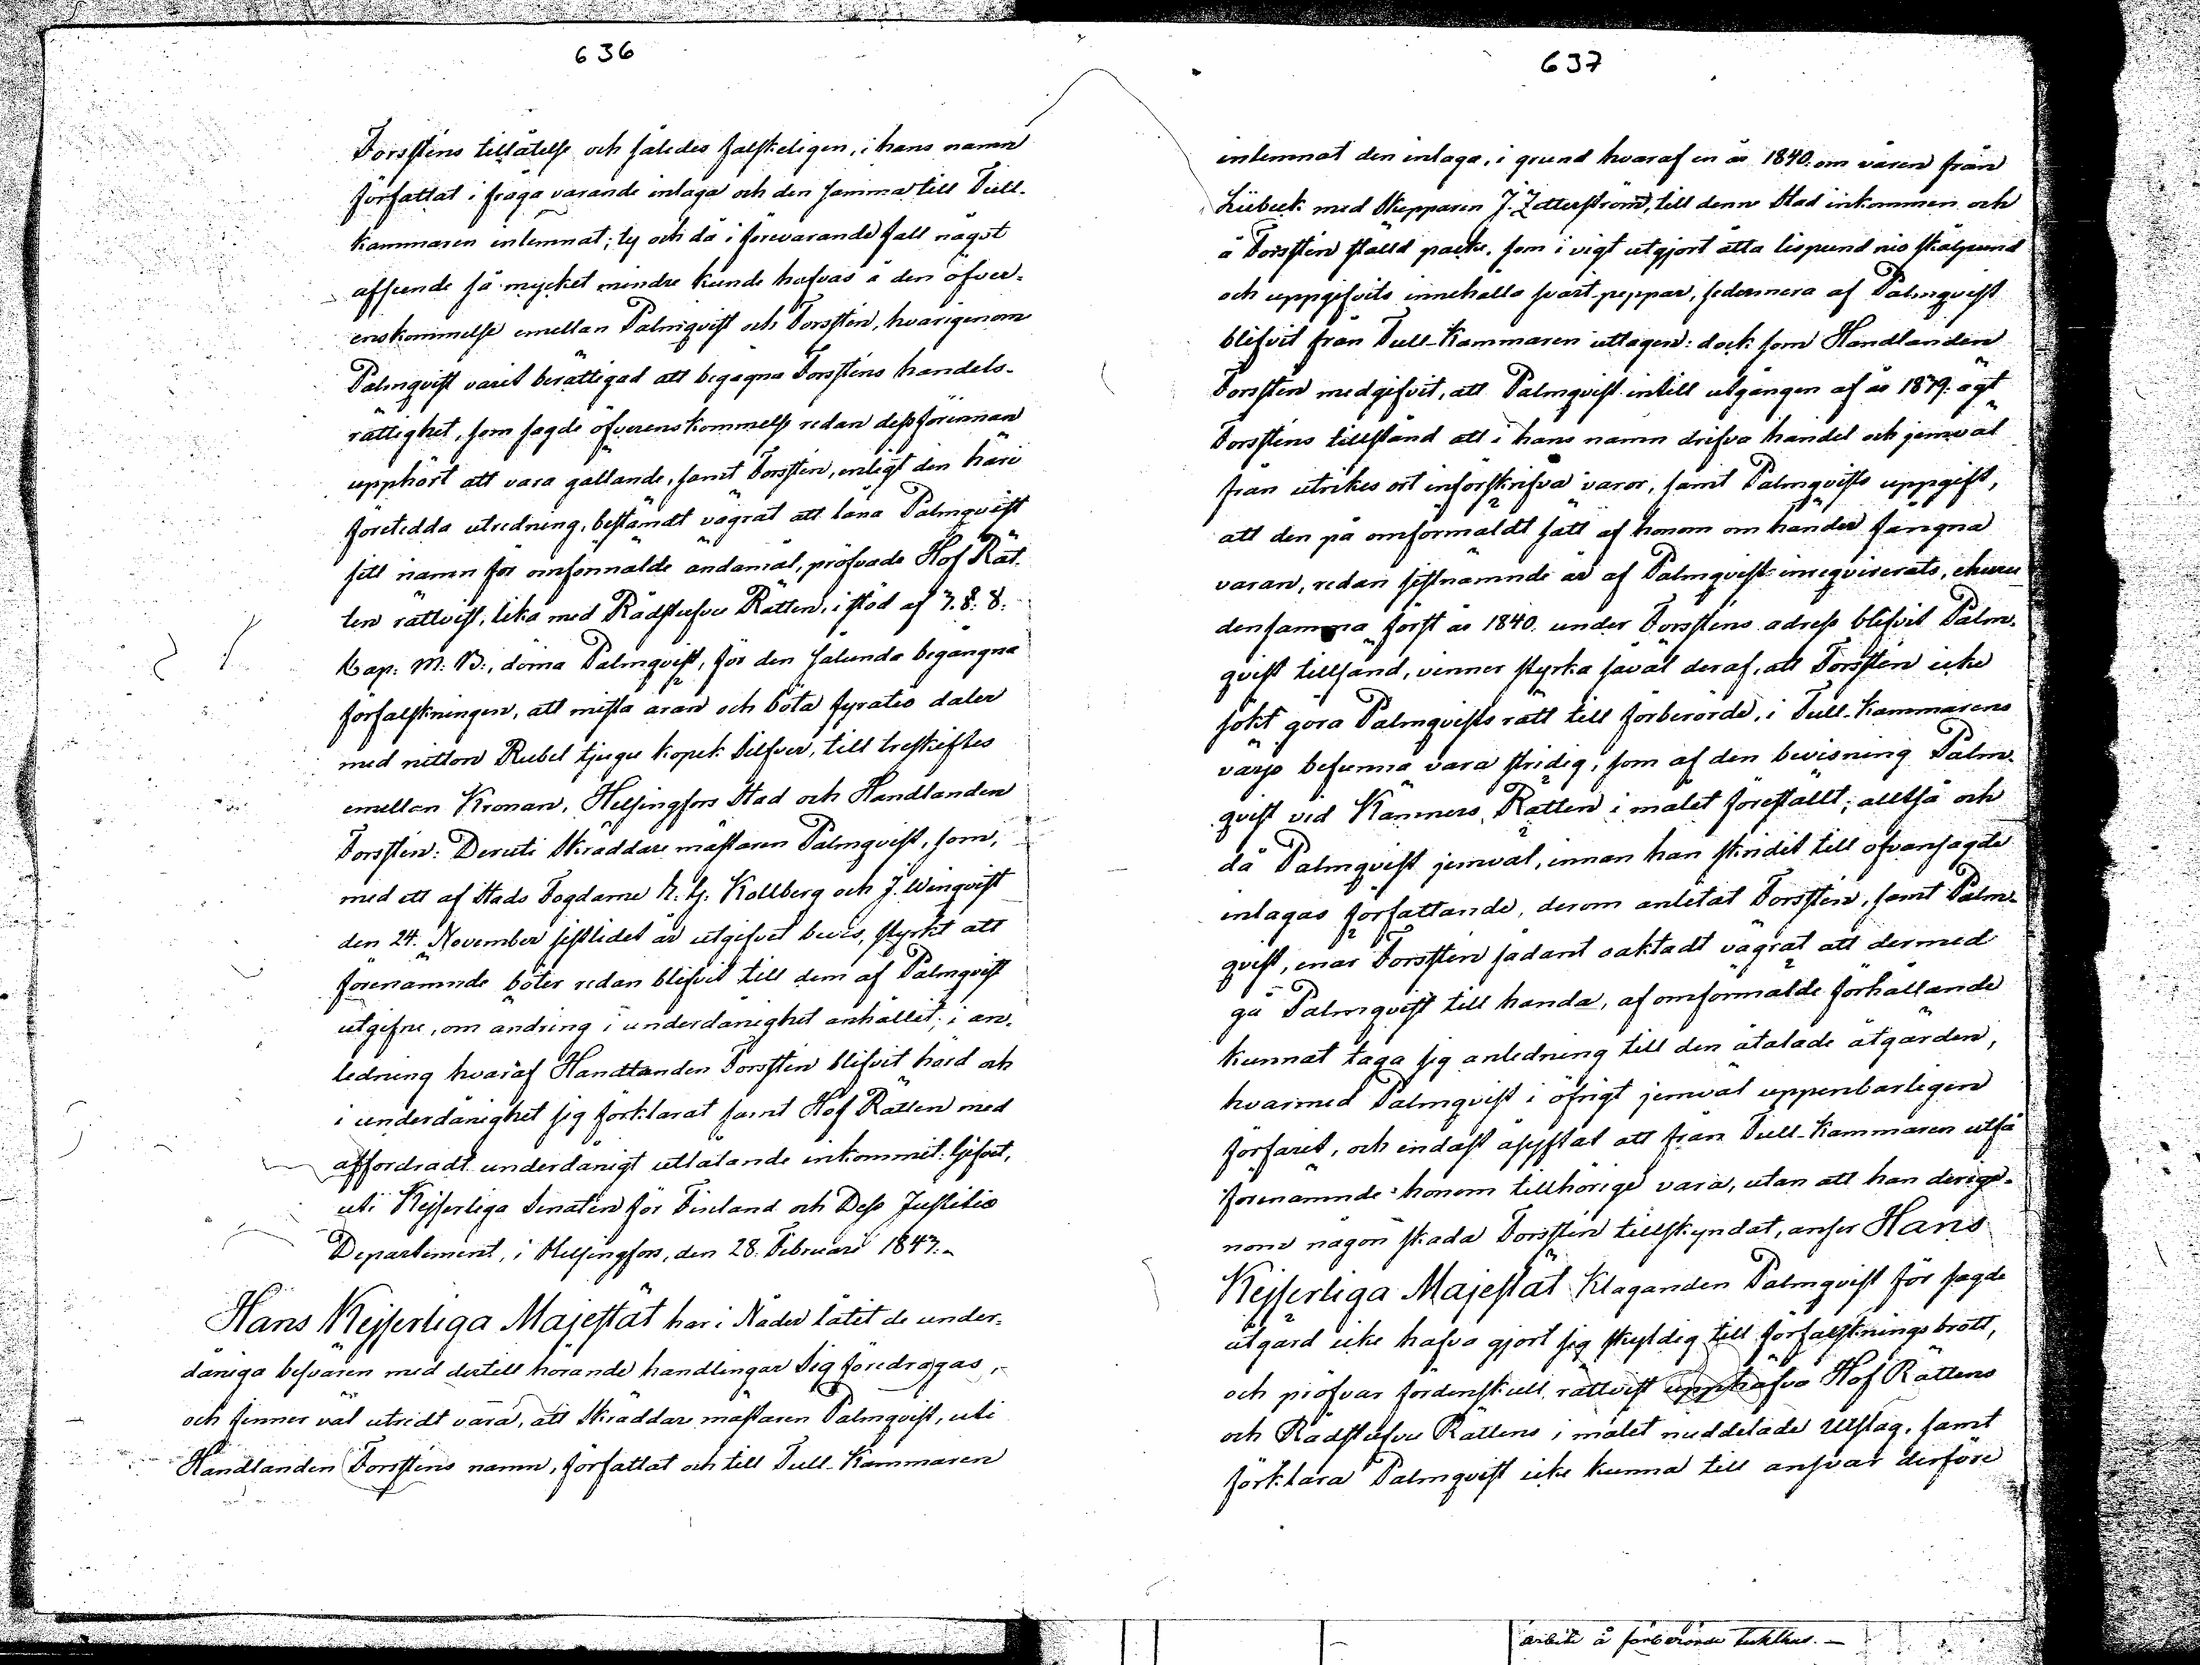 636
Forsténs tillåtelse och således falskeligen, i hans namn
författat i fråga varande inlaga och den samma till Tull-
kammaren inlemnat; ty och då i förevarande fall något
afseende så mycket mindre kunde hafvas å den öfver-
enskommelse emellan Palmqvist och Forstén, hvarigenom
Palmqvist varit berättigad att begagna Forsténs handels-
rättighet, som sagde öfverenskommelse redan dessförinnan
upphört att vara gällande, samt Forstén, enligt den häri
företedda utredning, bestämdt vägrat att låna Palmqvist
sitt namn för omförmälde ändamål, pröfvade Hof Rät-
ten rättvist, lika med Rådstufvu Rätten, i stöd af 3. §. 8.
Cap. M. B., döma Palmqvist, för den sålunda begångna
förfalskningen, att mista äran och böta fyratio daler
med nitton Rubel tjugu kopek Silfver, till treskiftes
emellan Kronan, Helsingfors Stad och Handlanden
Forstén: Deruti Skräddare mästaren Palmqvist, som,
med ett af Stads Fogdarne Kollberg och J. Winqvist
den 24. November sistlidet år utgifvet bevis, styrkt att
förenämnde böter redan blifvit till dem af Palmqvist
utgifne, om ändring i underdånighet anhållit; i an-
ledning hvaraf Handlanden Forstén blifvit hörd och
i underdånighet sig förklarat samt Hof Rätten med
affordradt underdånigt utlåtande inkommit: Gifvet,
uti Kejserliga Senaten för Finland och Dess Justitiæ
Departement, i Helsingfors, den 28. Februari 1843.
Hans Kejserliga Majestät har i Nåder låtit de under-
dåniga besvären med dertill hörande handlingar Sig föredragas,
och finner väl utredt vara, att Skräddare mästaren Palmqvist, uti
Handlanden Forsténs namn, författat och till Tull-Kammaren
637
inlemnat den inlaga, i grund hvaraf en år 1840. om våren från
Lübeck med Skepparen J. Zetterström, till denne Stad inkommen och
å Forstén ställd packe, som i vigt utgjort åtta lispund nio skålpund
och uppgifvits innehålla svart peppar, sedermera af Palmqvist
blifvit från Tull-Kammaren uttagen: dock som Handlanden
Forstén medgifvit, att Palmqvist intill utgången af år 1839. ägt
Forsténs tillstånd att i hans namn drifva handel och jemväl
från utrikes ort införskrifva varor, samt Palmqvists uppgift,
att den på omförmäldt sätt af honom om händer fångna
varan, redan sistnämnde år af Palmqvist inreqvirerats, ehuru
densamma först år 1840. under Forsténs adress blifvit Palm-
qvist tillsänd, vinner styrka såväl deraf, att Forstén icke
sökt göra Palmqvists rätt till förberörde, i Tull-Kammarens
värjo befunna vara stridig, som af den bevisning Palm-
qvist vid Kämners Rätten i målet föreställt; alltså och
då Palmqvist jemväl, innan han skridit till ofvansagde
inlagas författande, derom anlitat Forstén, samt Palm-
qvist, enär Forstén sådant oaktadt vägrat att dermed
gå Palmqvist till handa, af omförmälde förhållande
kunnat taga sig anledning till den åtalade åtgärden,
hvarmed Palmqvist i öfrigt jemväl uppenbarligen
förfarit, och endast åsyftat att från Tull-Kammaren utfå
förenämnde honom tillhörige vara, utan att han derige-
nom någon skada Forstén tillskyndat, anser Hans
Kejserliga Majestät Klaganden Palmqvist för sagde
åtgärd icke hafva gjort sig skyldig till förfalskningsbrott,
och pröfvar fördenskull rättvist upphäfva Hof Rättens
och Rådstufvu Rättens i målet meddelade Utslag, samt
förklara Palmqvist icke kunna till ansvar derföre
arbete å förberörde tukthus.